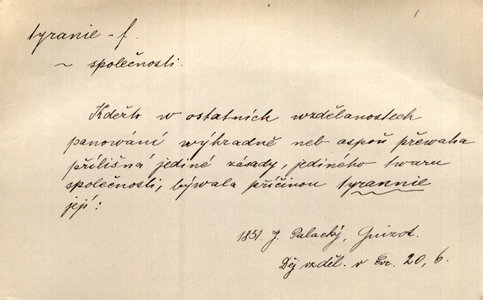 tyranie - f.
~ společnosti.
Kdežto w ostatních wzdělanostech
panowání wýhradně neb aspoň přewaha
přílišná jediné zásady, jediného twaru
společnosti, býwala příčinou tyrannie
její:
1851. J. Palacký, Guizot.
Děj vzděl. v Evr. 20, 6.